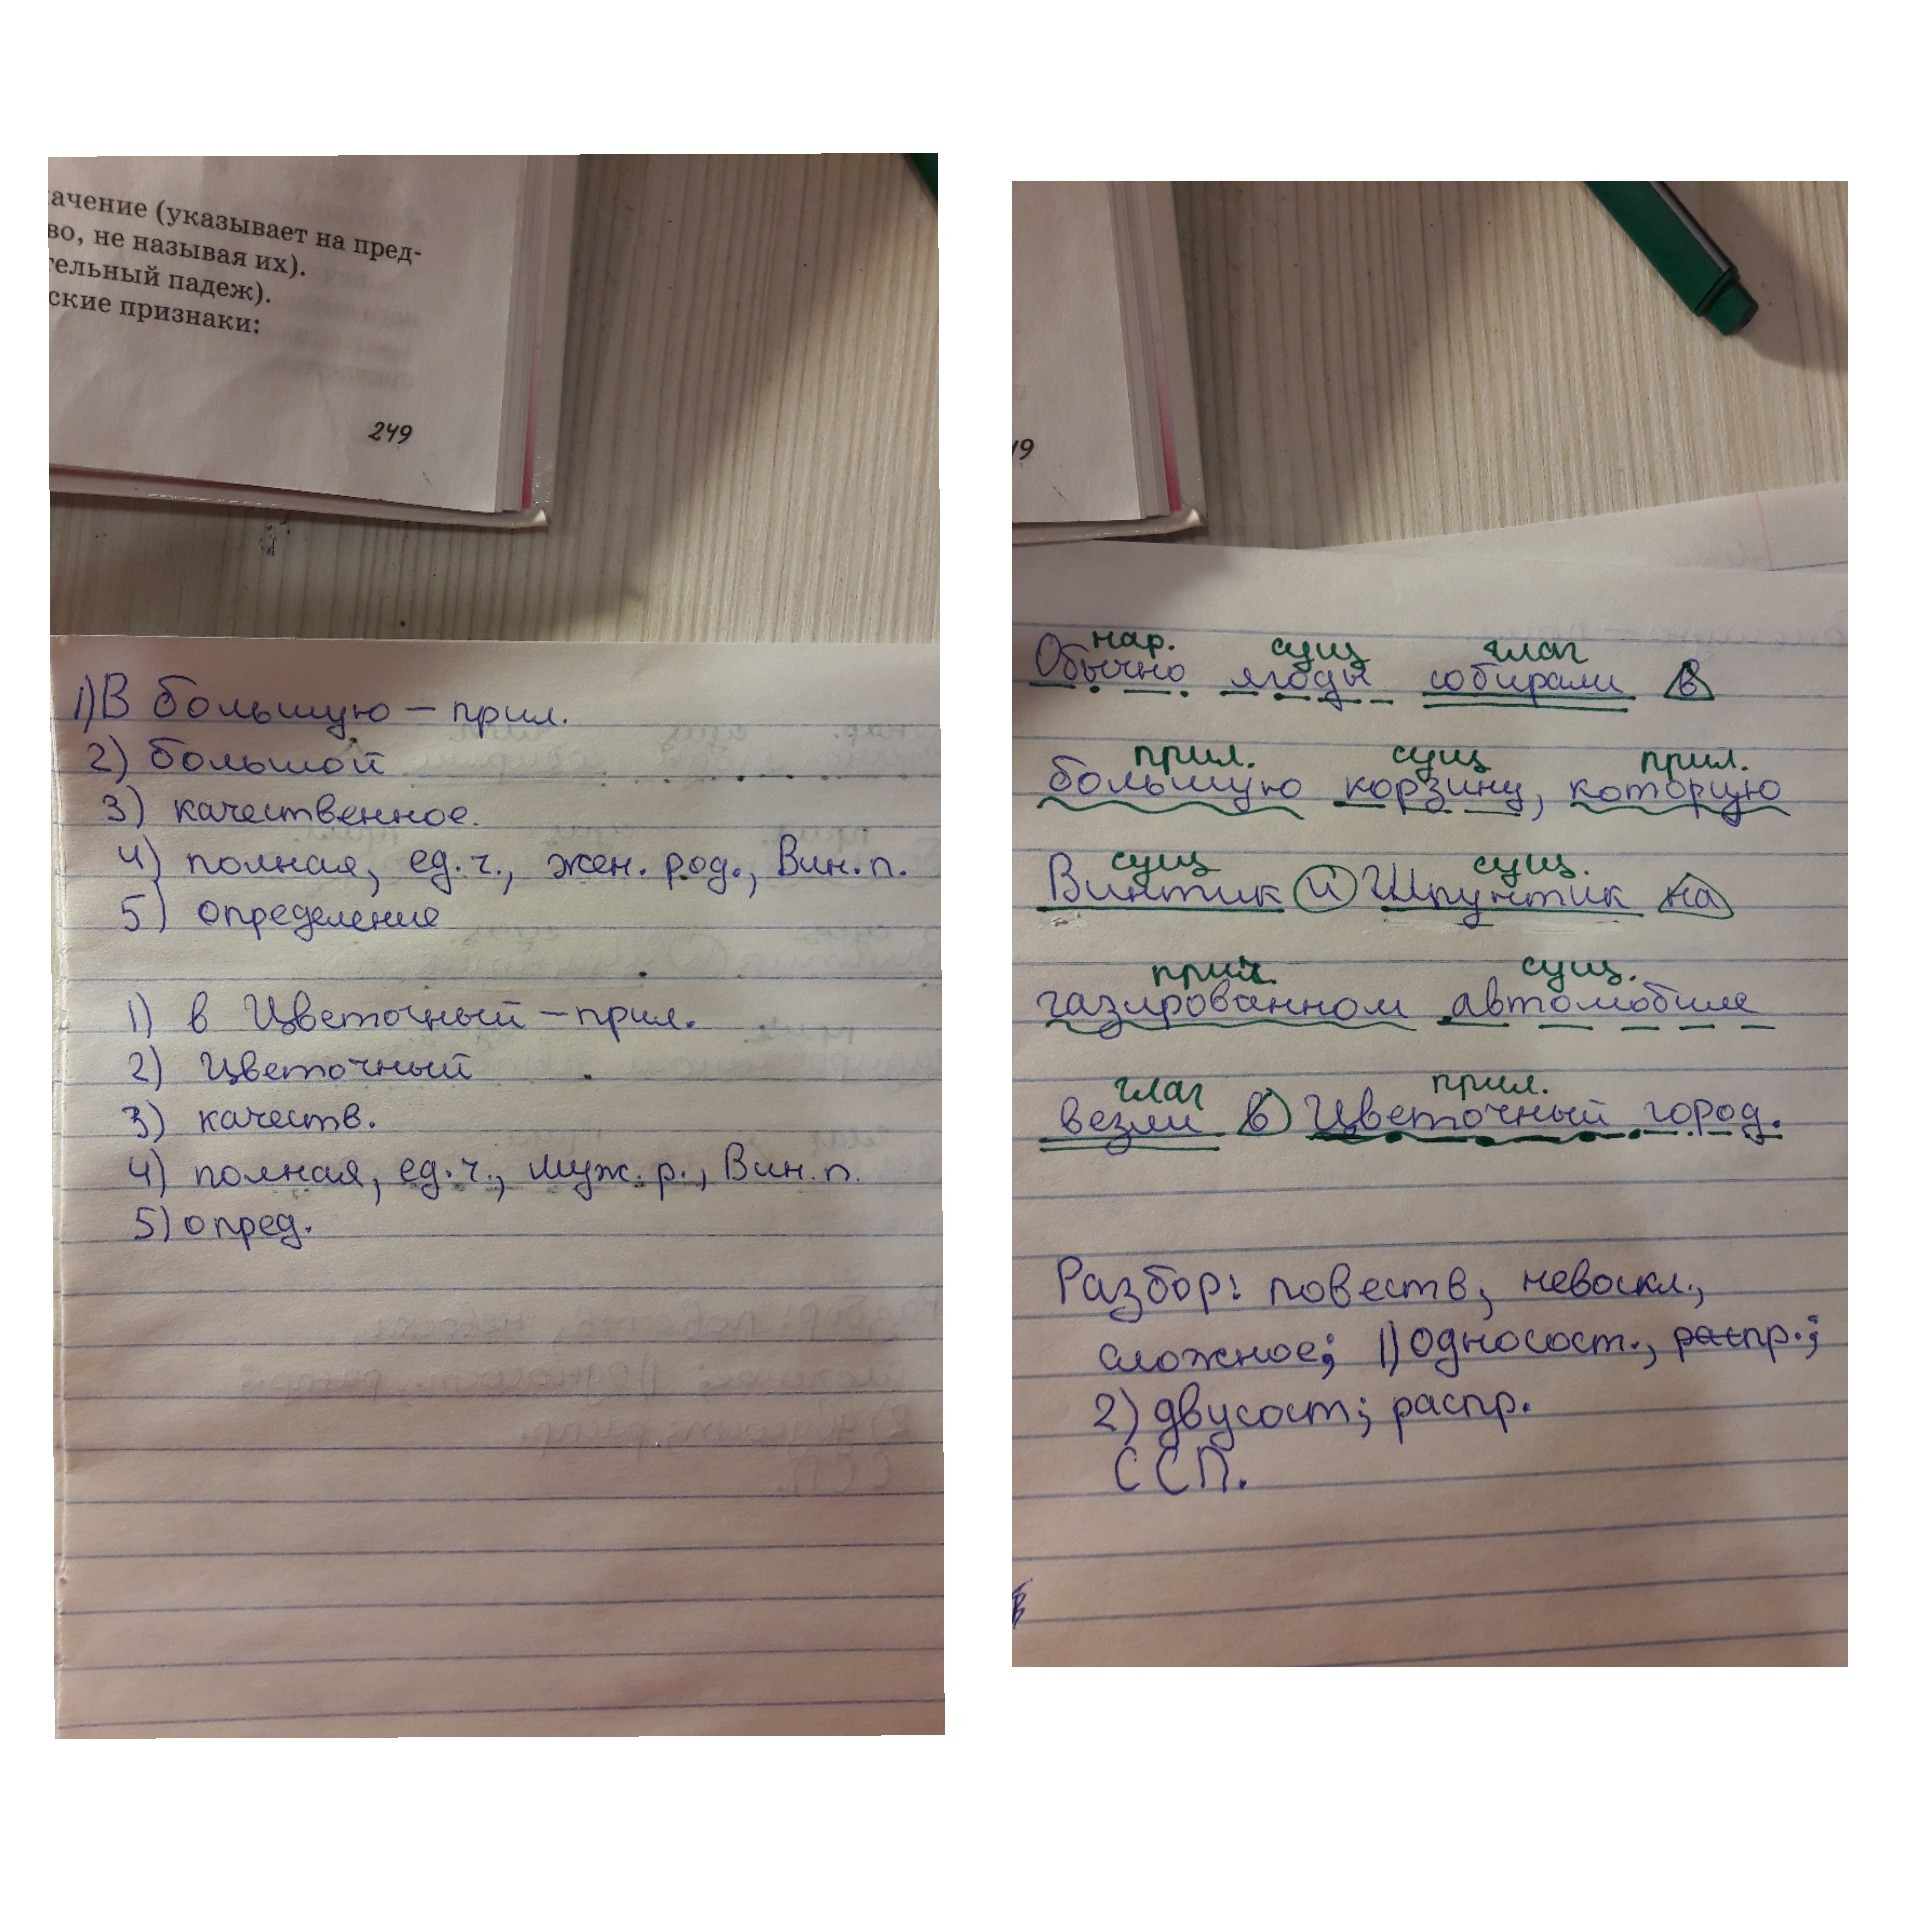 ачение (указывает на пред-
во, не называя их).
тельный падеж).
ские признаки:
249
1) В большую – прил.
2) большой
3) качественное.
4) полная, ед.ч., жен. род., Вин.п.
5) определение
1) в Цветочный – прил.
2) Цветочный
3) качеств.
4) полная, ед.ч., муж.р., Вин.п.
5) опред.
9
нар. сущ глаг
Обычно ягоды собирали в
прил. сущ прил.
большую корзину, которую
сущ сущ.
Винтик и Шпунтик на
прил. сущ.
газированном автомобиле
глаг прил.
везли в Цветочный город.
Разбор: повеств, невоскл.,
сложное; 1) Односост., распр.;
2) двусост; распр.
ССП.